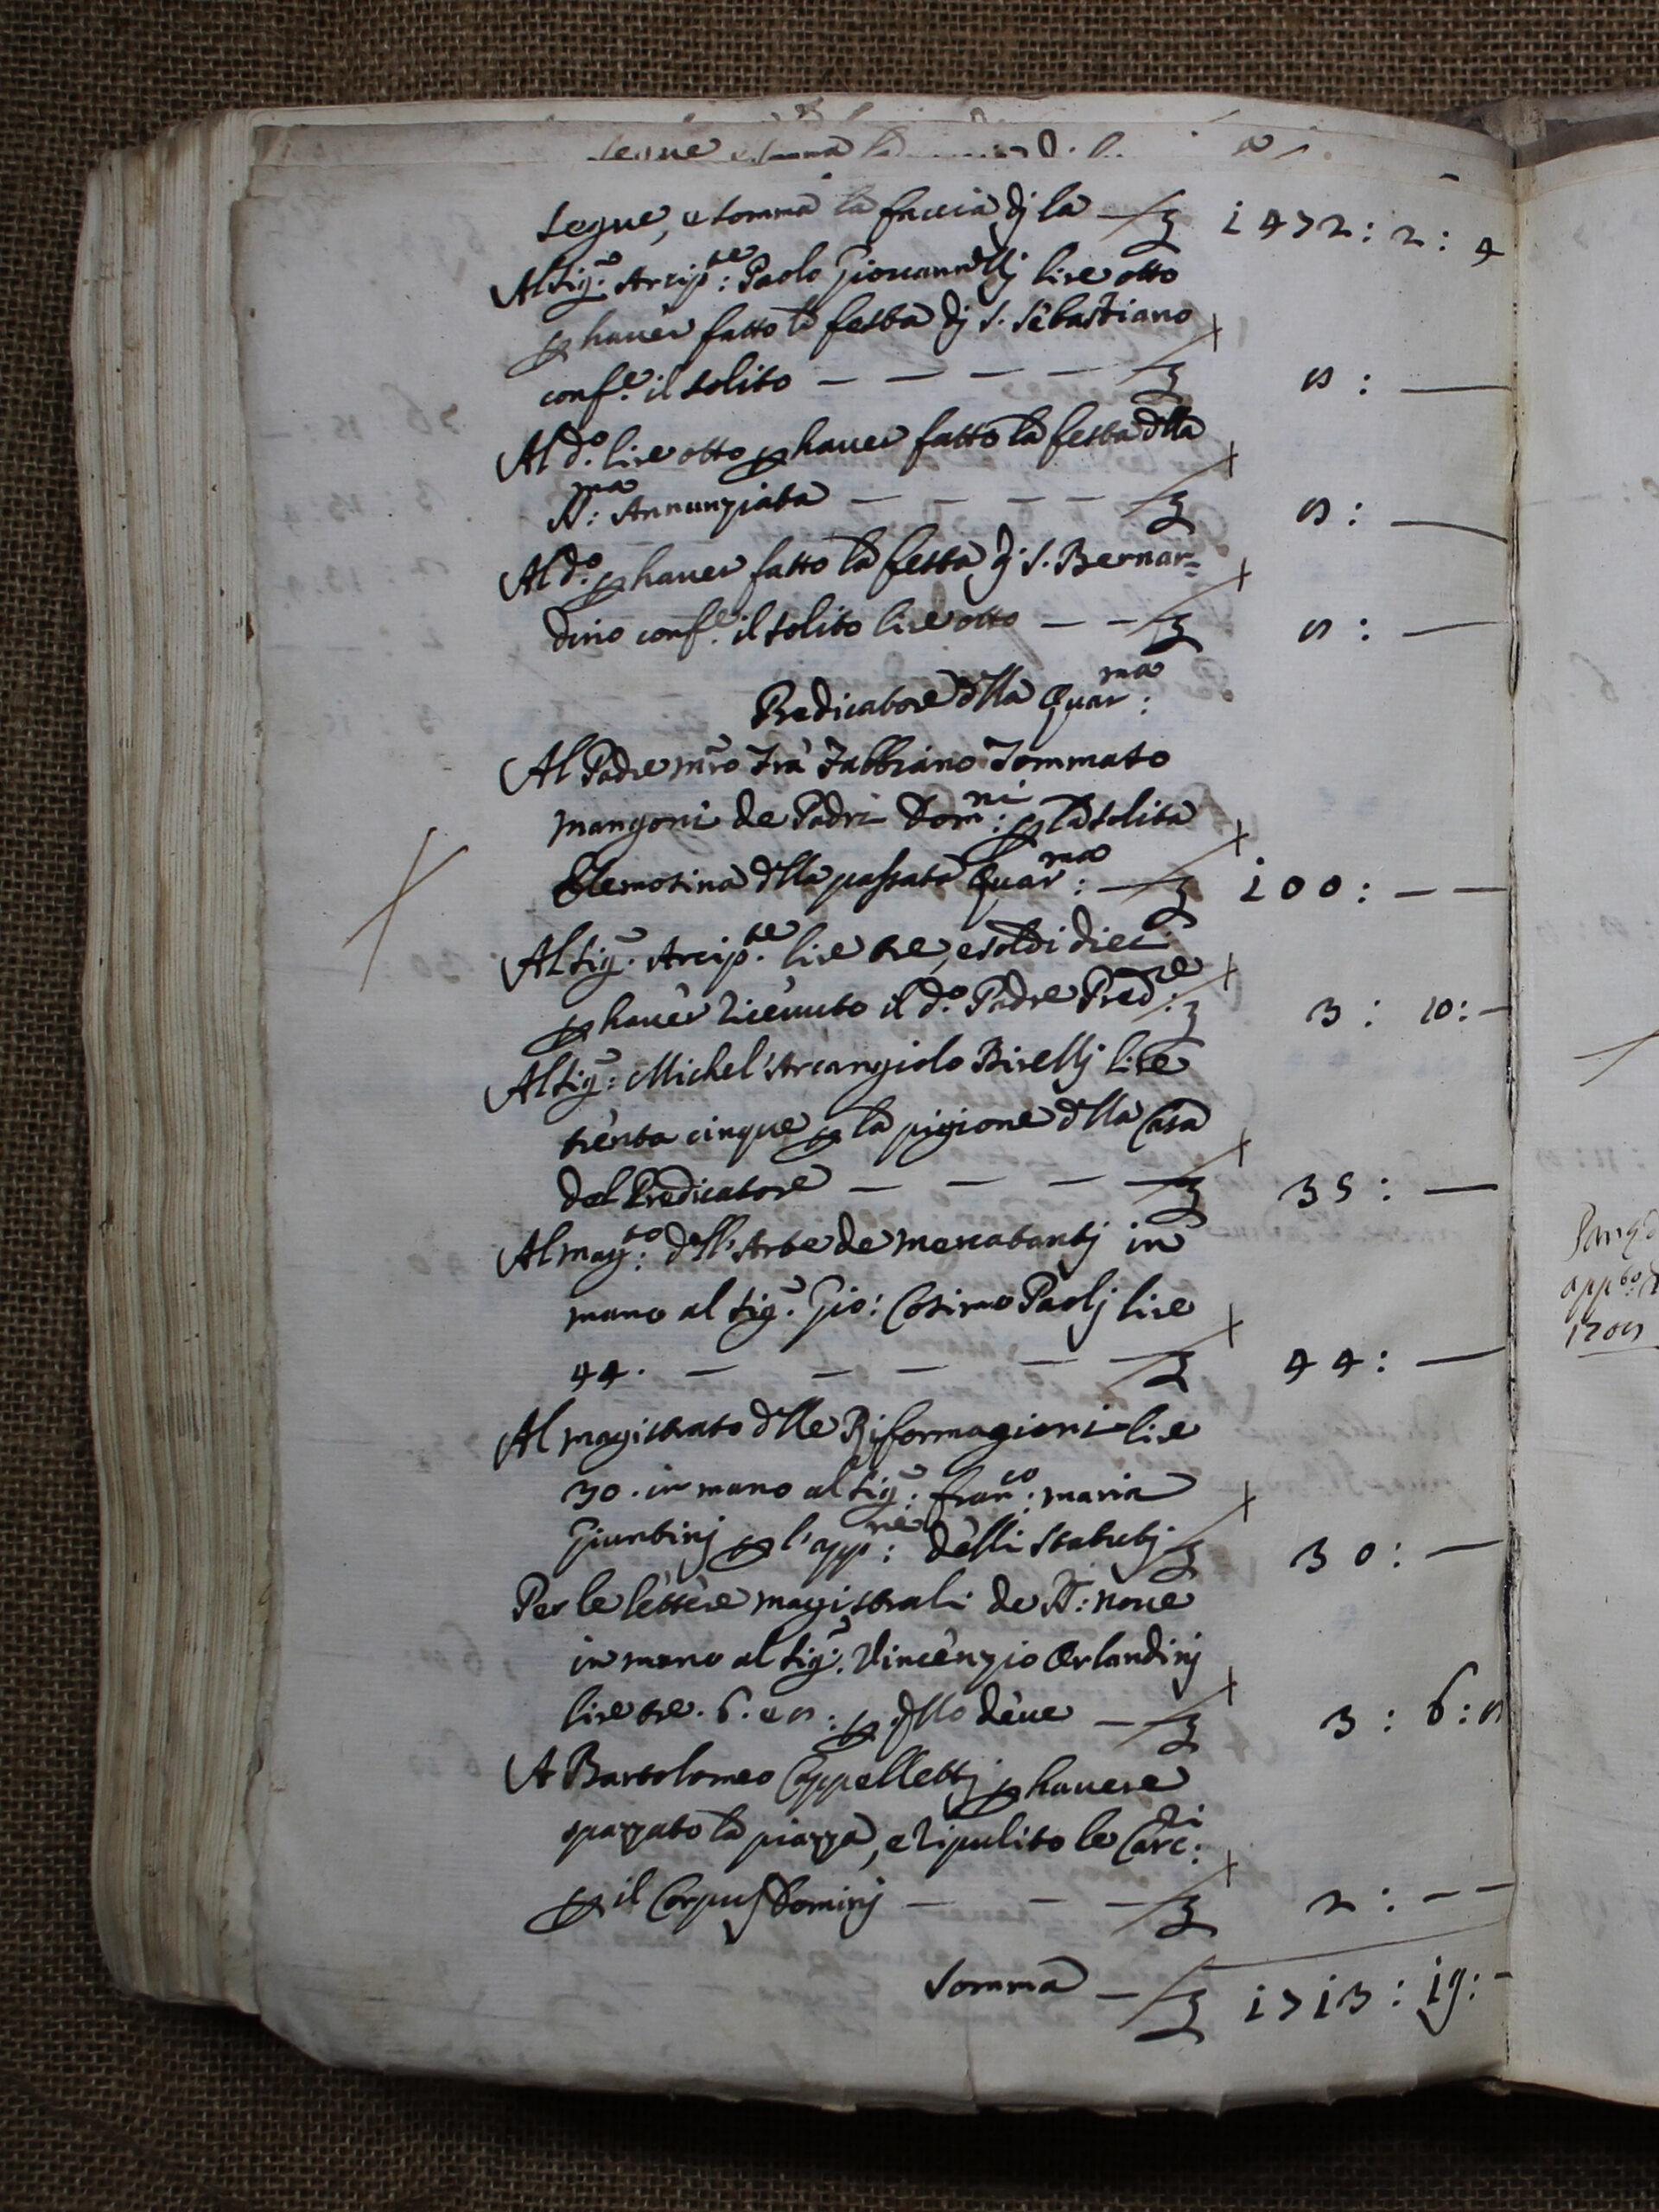 Segue, e somma la faccia dj la — £ 1472: 2: 4
Al Sig.ro Arcip.te: Paolo Giouannellj lire otto
p hauer fatto la festa dj S. Sebastiano
conf.e il solito — — — — £ 8: —
Al d.o lire otto p hauer fatto la festa dlla
SS.ma: Annunziata — — — — £ 8: —
Al d.o p hauer fatto la festa dj S. Bernar=
dino conf.e il solito lire otto — — £ 8: —
Predicatore dlla Quar.ma:
Al Padre mro Fra Fabbiano Tommaso
Mangoni de Padri Dom.ni: p la solita
Elemosina dlla passata Quar.ma: — £ 100: — —
Al Sig. Arcip.te lire tre, e soldi dieci
p hauer riceuuto il d.o Padre Pred.re: £ 3: 10: —
Al Sig: Michel' Arcangiolo Birellj lire
trenta cinque p la pigione dlla Casa
del Predicatore — — — — £ 35: —
Al mag.to: dell' Arte de Mercatantj in
mano al Sig. Gio: Cosimo Paolj lire
44. — — — — £ 44: —
Al magistrato dlle Riformagioni lire
30. in mano al Sig: Fran.co: Maria
Giuntinj p l'app.ne: delli Statutj £ 30: —
Per le lettere magistrali de SS: noue
in mano al Sig. Vincenzio Orlandinj
lire tre. 6. e 8: p qllo deue — £ 3: 6: 8
A Bartolomeo Cappellettj p hauere
spazzato la piazza, e ripulito le Carc.ri:
p il Corpus Dominj — — — £ 2: — —
Somma — £ 1713: 19: —